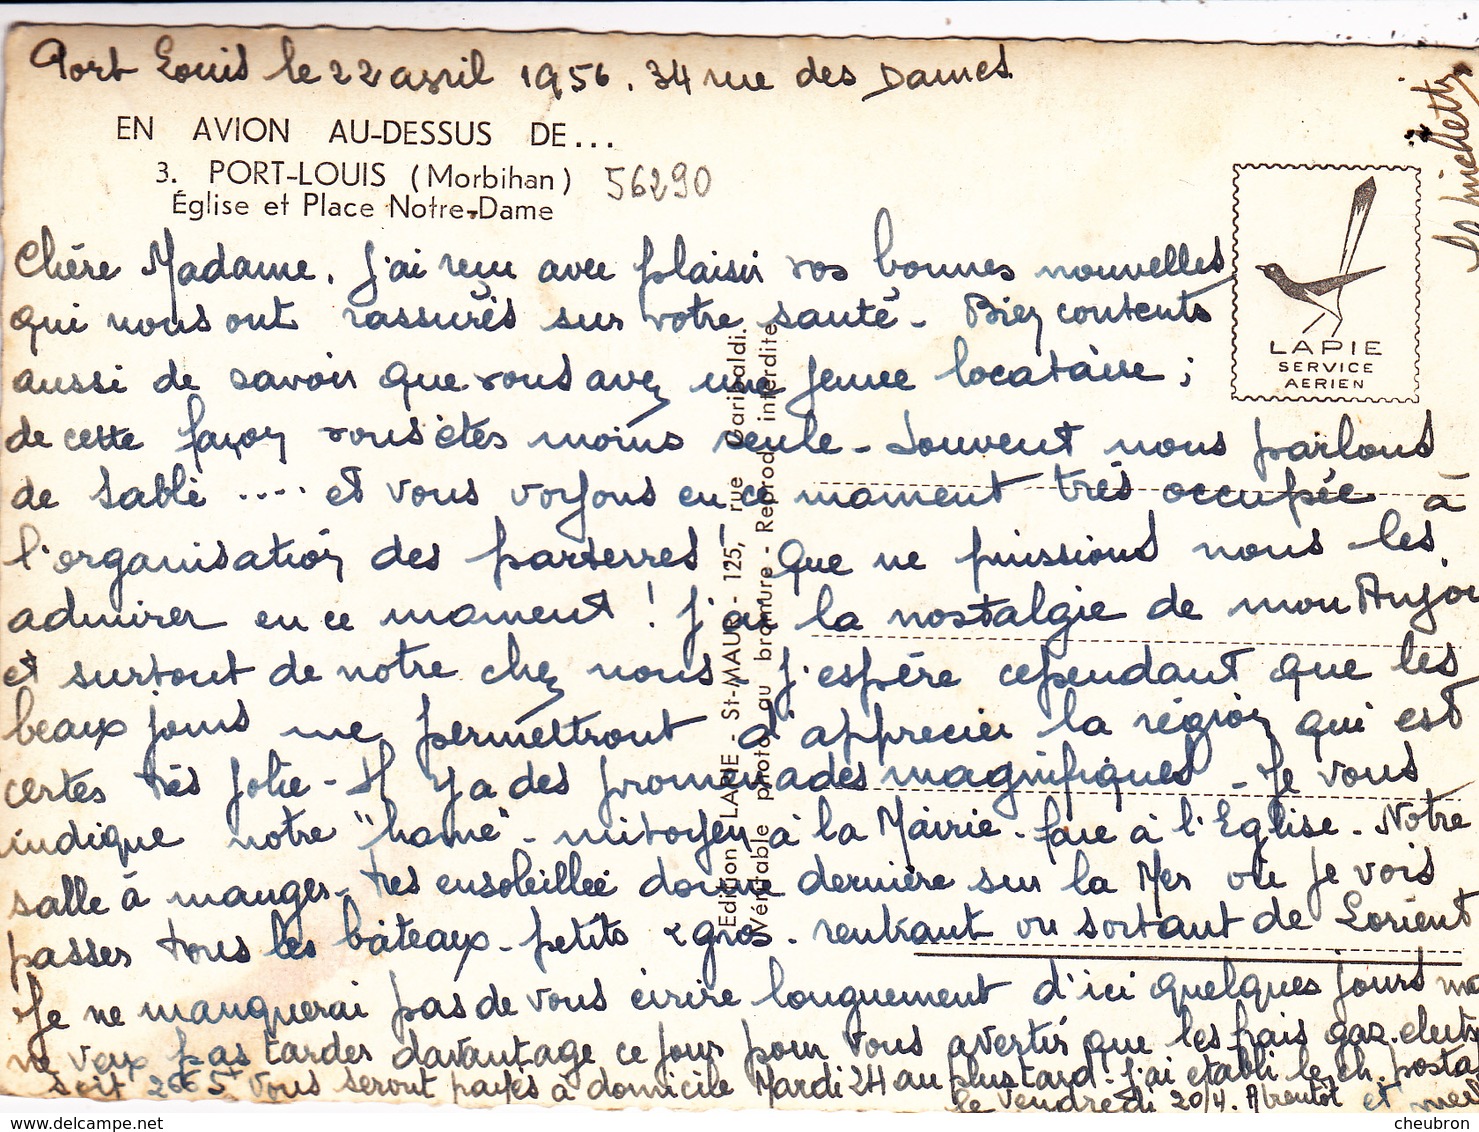 Port Louis le 22 avril 1956. 34 rue des Dames
EN AVION AU-DESSUS DE...
3. PORT-LOUIS (Morbihan) 56290
Église et Place Notre-Dame
Chère Madame, j'ai reçu avec plaisir vos bonnes nouvelles
qui nous ont rassurés sur votre santé - Bien contents
aussi de savoir que vous avez une jeune locataire ;
de cette façon vous êtes moins seule - Souvent nous parlons
de Sablé .... et vous voyons en ce moment très occupée à
l'organisation des parterres ! Que ne puissions nous les
admirer en ce moment ! J'ai la nostalgie de mon Anjou
et surtout de notre chez nous - J'espère cependant que les
beaux jours me permettront d'apprecier la région qui est
certes très jolie - Il y a des promenades magnifiques - Je vous
indique notre "home" - mitoyen à la Mairie - face à l'Eglise - Notre
salle à manger - très ensoleillée donne derrière sur la Mer où je vois
passer tous les bâteaux - petits & gros - rentrant ou sortant de Lorient
Je ne manquerai pas de vous écrire longuement d'ici quelques jours ma
ne veux pas tarder davantage ce jour pour vous avertir que les frais gaz-electr
soit 2665f vous seront payés à domicile Mardi 24 au plus tard - J'ai etabli le ch. posta
le vendredi 20/4. A bientôt et mer
LAPIE
SERVICE
AERIEN
Edition LAPIE - St-MAUR - 125, rue Garibaldi.
Véritable photo au bromure - Reprod. interdite
cheubron